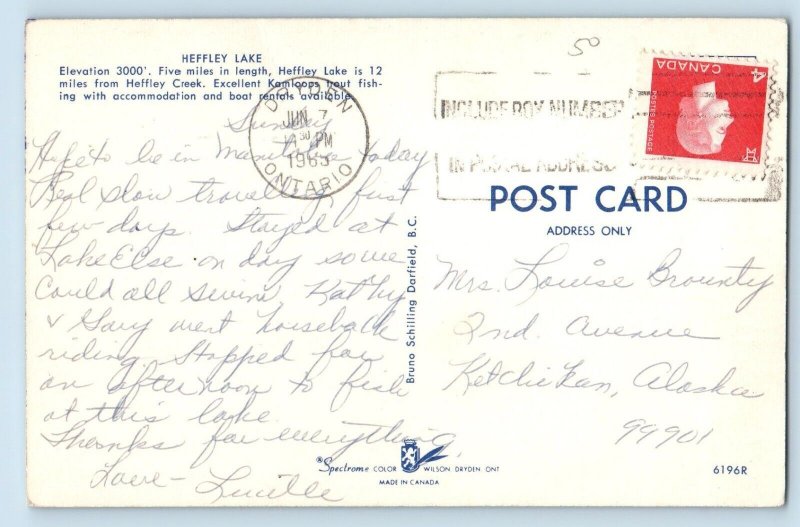 HEFFLEY LAKE
Elevation 3000'. Five miles in length, Heffley Lake is 12
miles from Heffley Creek. Excellent Kamloops trout fish-
ing with accommodation and boat rentals available.
50
DRYDEN
JUN 7
30 PM
ONTARIO
INCLUDE BOX NUMBER
IN POSTAL ADDRESS
4
CANADA
POSTES POSTAGE
Sunday
Hope to be in Manitoba today
Real slow traveling first
few days. Stayed at
Lake Else on day some
Could all swim. Kathy
& Gary went horseback
riding. Stopped for
an afternoon to fish
at this lake.
Thanks for everything,
Love - Lucille
Bruno Schilling Darfield, B.C.
POST CARD
ADDRESS ONLY
Mrs. Louise Brounty
2nd. Avenue
Ketchikan, Alaska
99901
®Spectrome COLOR WILSON DRYDEN ONT
MADE IN CANADA
6196R